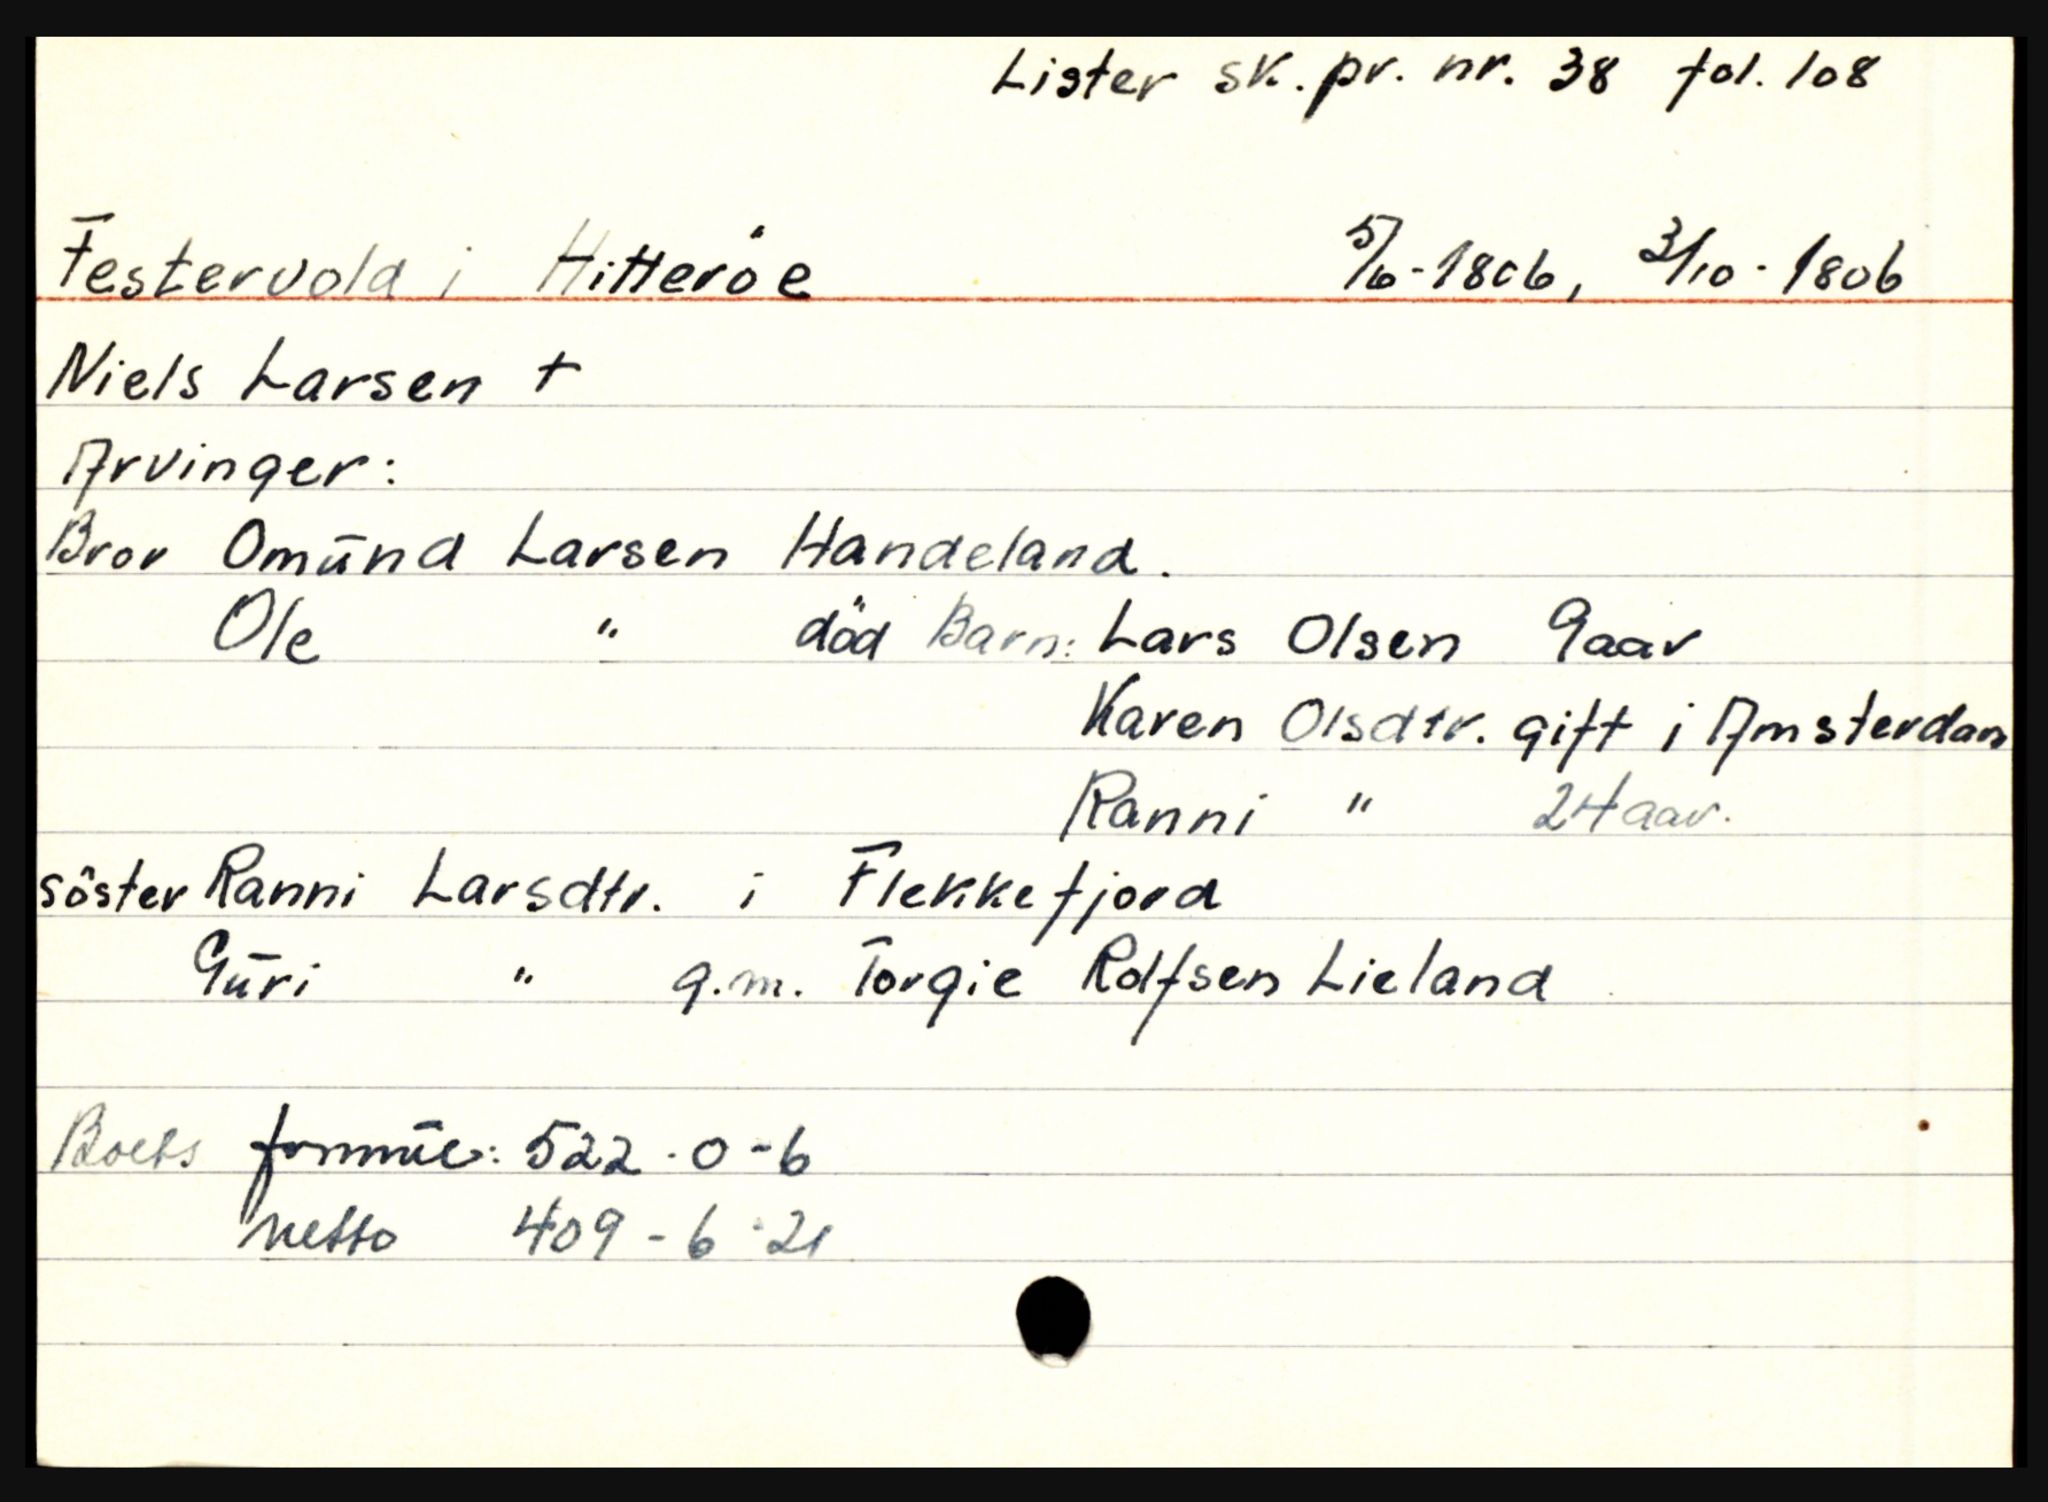 Lister sk. pr. nr. 38 fol. 108
Festervold i Hitteröe 5/6-1806, 3/10-1806
Niels Larsen +
Arvinger:
Bror Omünd Larsen Handeland.
Ole " död Barn: Lars Olsen Gaar
Karen Olsdtr. gift i Amsterdam
Ranni " 24 aar.
söster Ranni Larsdtr. i Flekkefjord
Güri " g.m. Torgie Rolfsen Lieland
Boets formüe: 522-0-6
netto 409-6-21